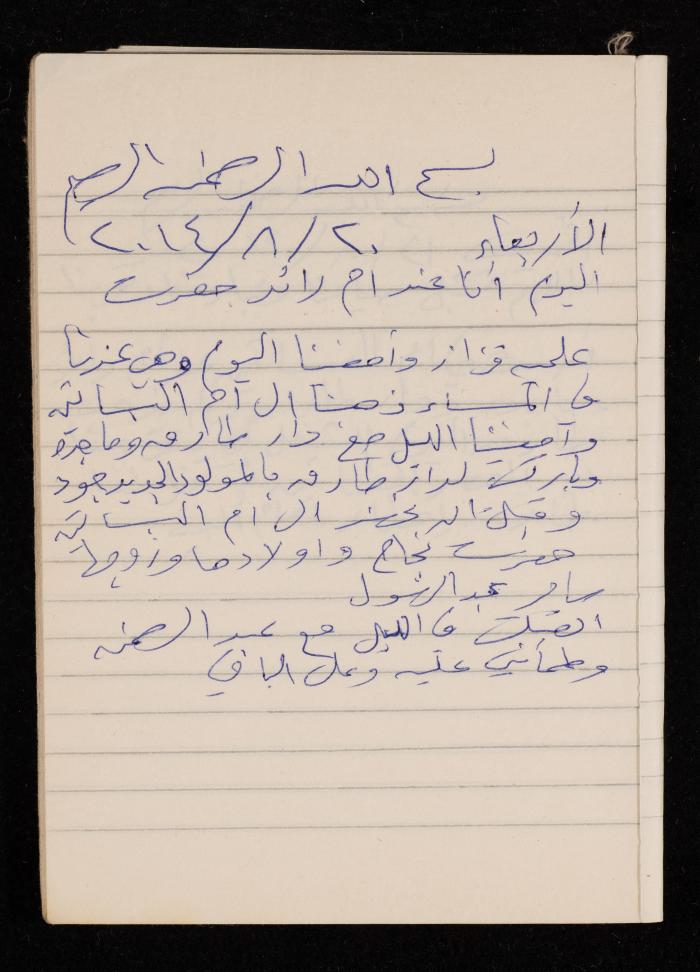 بسم الله الرحمن الرحيم
الأربعاء ٢٠/٨/٢٠١٤
اليوم أنا عند ام رائد حضرت
علمه قزاز وأمضنا اليوم وهي عندنا
في المساء ذهبنا الى ام
وأمضينا الليل مع دار طارق
وباركت لدار طارق بالمولود الجديد جود
وقبل ان نحضر الى ام
حضرت نجاح واولادها وزوجها
سامر عبد الرسول
اتصلت في الليل مع عبد الرحمن
وطمأنني عليه وعلى الباقي